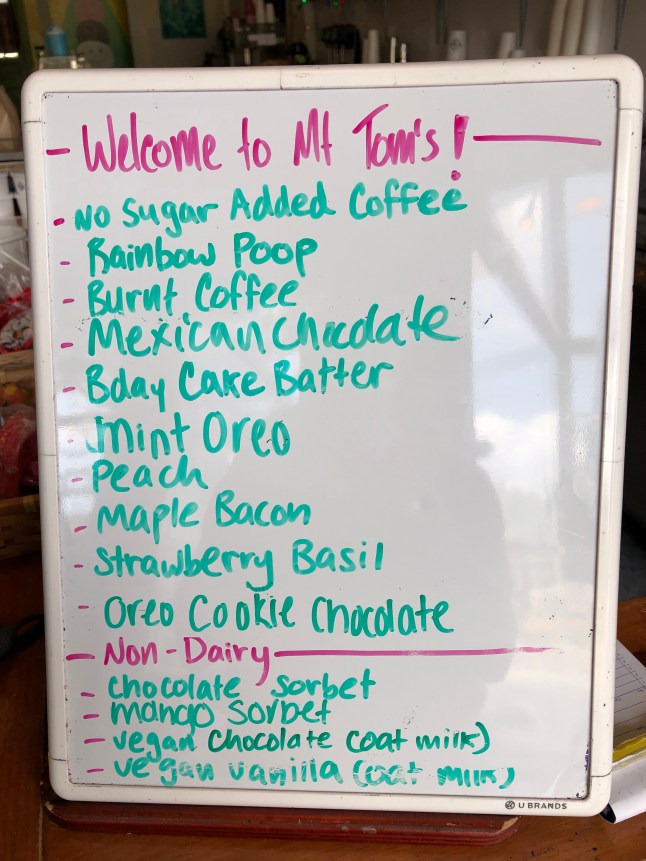 - Welcome to Mt Tom's! -
- No Sugar Added Coffee
- Rainbow Poop
- Burnt Coffee
- Mexican Chocolate
- Bday Cake Batter
- Mint Oreo
- Peach
- Maple Bacon
- Strawberry Basil
- Oreo Cookie Chocolate
- Non-Dairy -
- chocolate sorbet
- mango sorbet
- vegan chocolate (oat milk)
- vegan vanilla (oat milk)
U BRANDS